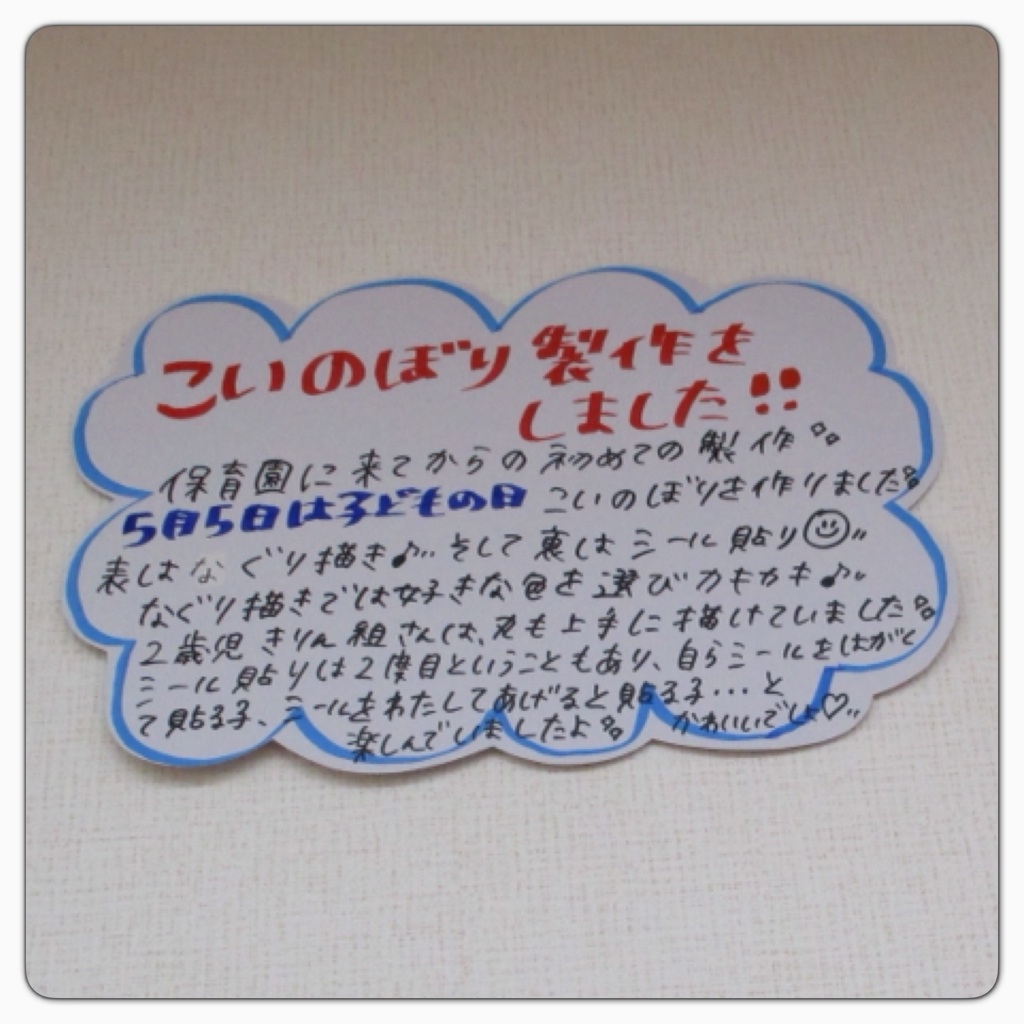 こいのぼり製作を
しました!!
保育園に来てからの初めての製作
5月5日は子どもの日 こいのぼりを作りました
表はなぐり描き♪ そして裏はシール貼り☺
なぐり描きでは好きな色を選びカキカキ♪
2歳児きりん組さんは、丸も上手に描けていました
シール貼りは2度目ということもあり、自らシールをはがし
て貼る子、シールをわたしてあげると貼る子…と
楽しんでいましたよ かわいいでしょ♡